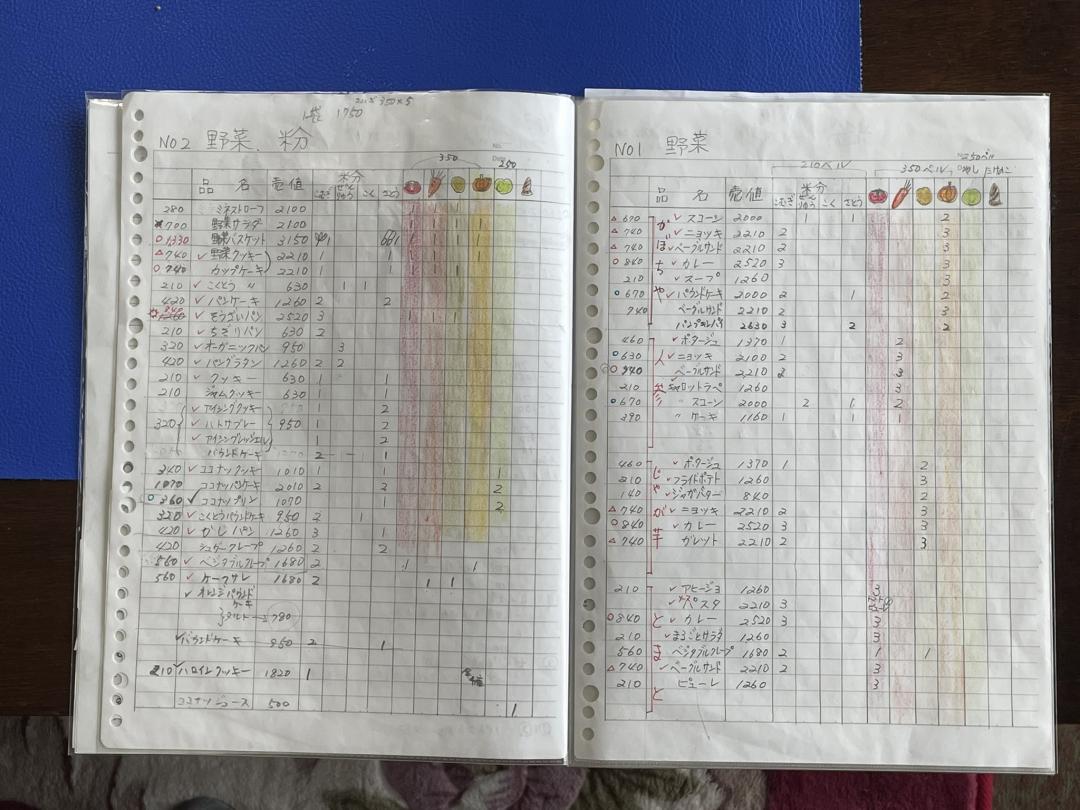 350×5
1袋 1750
No2 野菜、粉
350
250
品 名 売値 粉 こむぎ ぜんりゅう こく さとう
280 ミネストローフ 2100 1 1 1 1
700 野菜サラダ 2100 1 1 1 1
1330 野菜バスケット 3150 1 1 1 1
△740 ✓野菜クッキー 2210 1 1 1 1 1 1
○740 カップケーキ 2210 1 1 1 1 1
210 ✓こくとう 〃 630 1 1
420 ✓パンケーキ 1260 2 2
✓そうざいパン 2520 3 1 1 1
210 ✓ちぎりパン 630 2
320 ✓オーガニックパン 950 3
420 ✓パングラタン 1260 2 2
210 ✓クッキー 630 1 1
210 ジャムクッキー 630 1 1
✓アイシングクッキー 1 2
320 ✓ハトサブレー 950 1 2
✓アイシングプレッツェル 1 2
パウンドケーキ 2 1
340 ✓ココナックッキー 1010 1 1 1
1070 ココナッパンケーキ 2010 2 2 2
360 ✓ココナップリン 1070 1 2
320 ✓こくとうパウンドケーキ 950 2 1
420 ✓かしパン 1260 3 1
420 シュガークレープ 1260 2 2
560 ✓ベジタブルクレープ 1680 2 1 1
560 ✓ケークサレ 1680 2 1 1
✓オレンジパウンド
ケーキ
タルト 780
✓パウンドケーキ 950 2 1
210 ✓ハロインクッキー 1820 1
ココナツジュース 500 1
No1 野菜
250ベル
210ベル
350ベル
品 名 売値 粉 こむぎ ぜんりゅう こく さとう
かぼちゃ
△670 ✓スコーン 2000 1 1 2
△740 ✓ニョッキ 2210 2 3
△740 ✓ベーグルサンド 2210 2 3
○840 ✓カレー 2520 3 3
210 ✓スープ 1260 3
○670 ✓パウンドケーキ 2000 2 1 2
740 ベーグルサンド 2210 2 3
パンプキンパイ 2630 3 2 2
人参
460 ✓ポタージュ 1370 1 2
○630 ✓ニョッキ 2100 2 3
○740 ベーグルサンド 2210 2 3
210 キャロットラペ 1260 3
○670 〃 スコーン 2000 2 1 2
390 〃 ケーキ 1160 1 1 1
じゃが芋
460 ✓ポタージュ 1370 1 2
210 ✓フライドポテト 1260 3
140 ✓ジャガバター 840 2
△740 ✓ニョッキ 2210 2 3
○840 ✓カレー 2520 3 3
△740 ガレット 2210 2 3
とまと
210 ✓アヒージョ 1260 3
✓パスタ 2210 3
○840 ✓カレー 2520 3 3
210 ✓まるごとサラダ 1260 3
560 ベジタブルクレープ 1680 2 1 1
△740 ✓ベーグルサンド 2210 2 3
210 ピューレ 1260 3